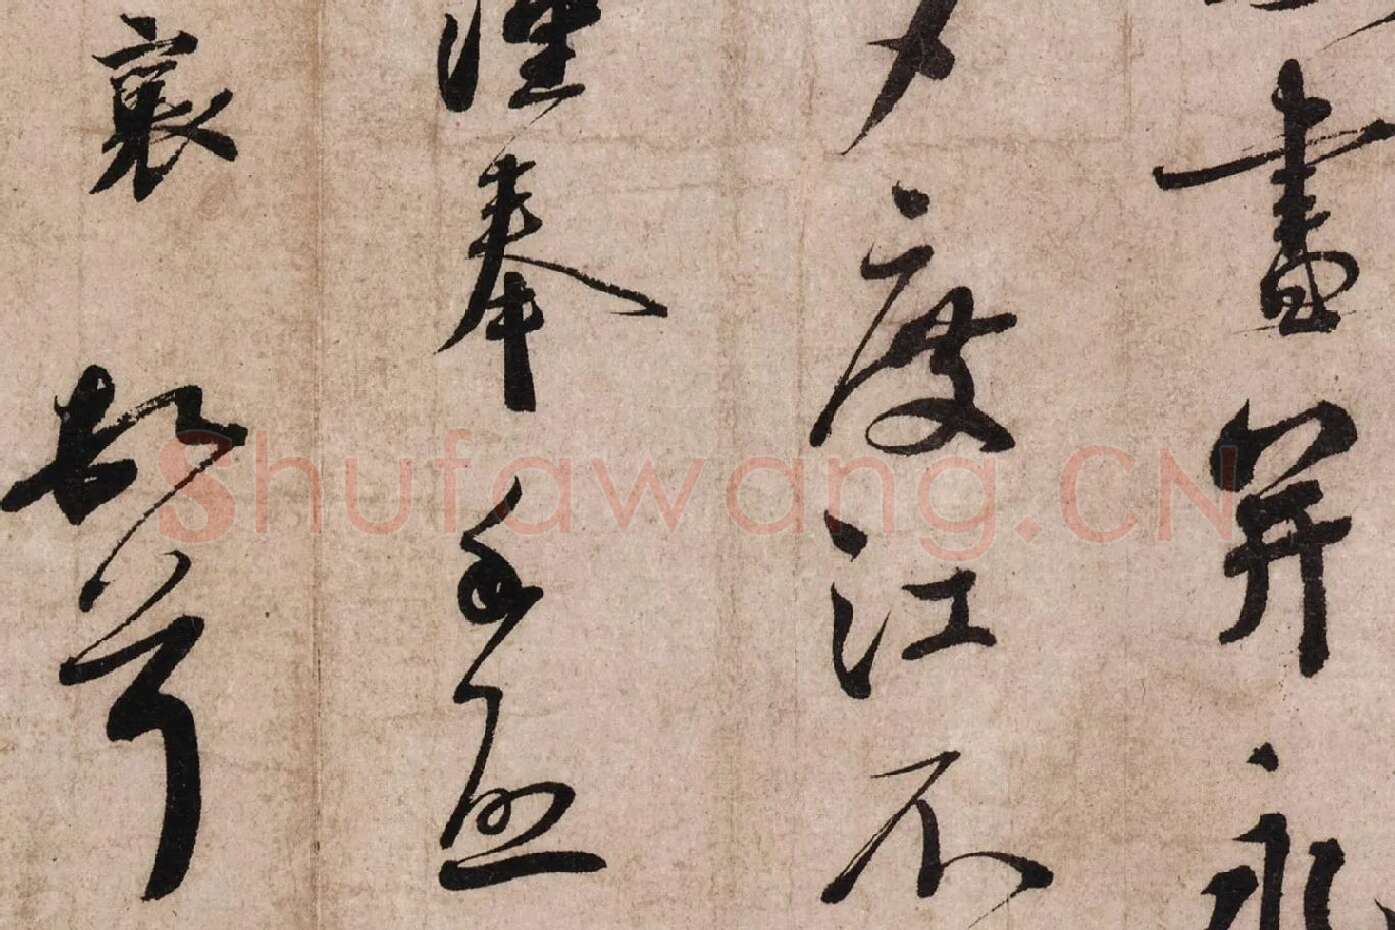 畫 并 永
夕 度 江 不
謹 奉 手 啟
襄 頓首
Shufawang.CN